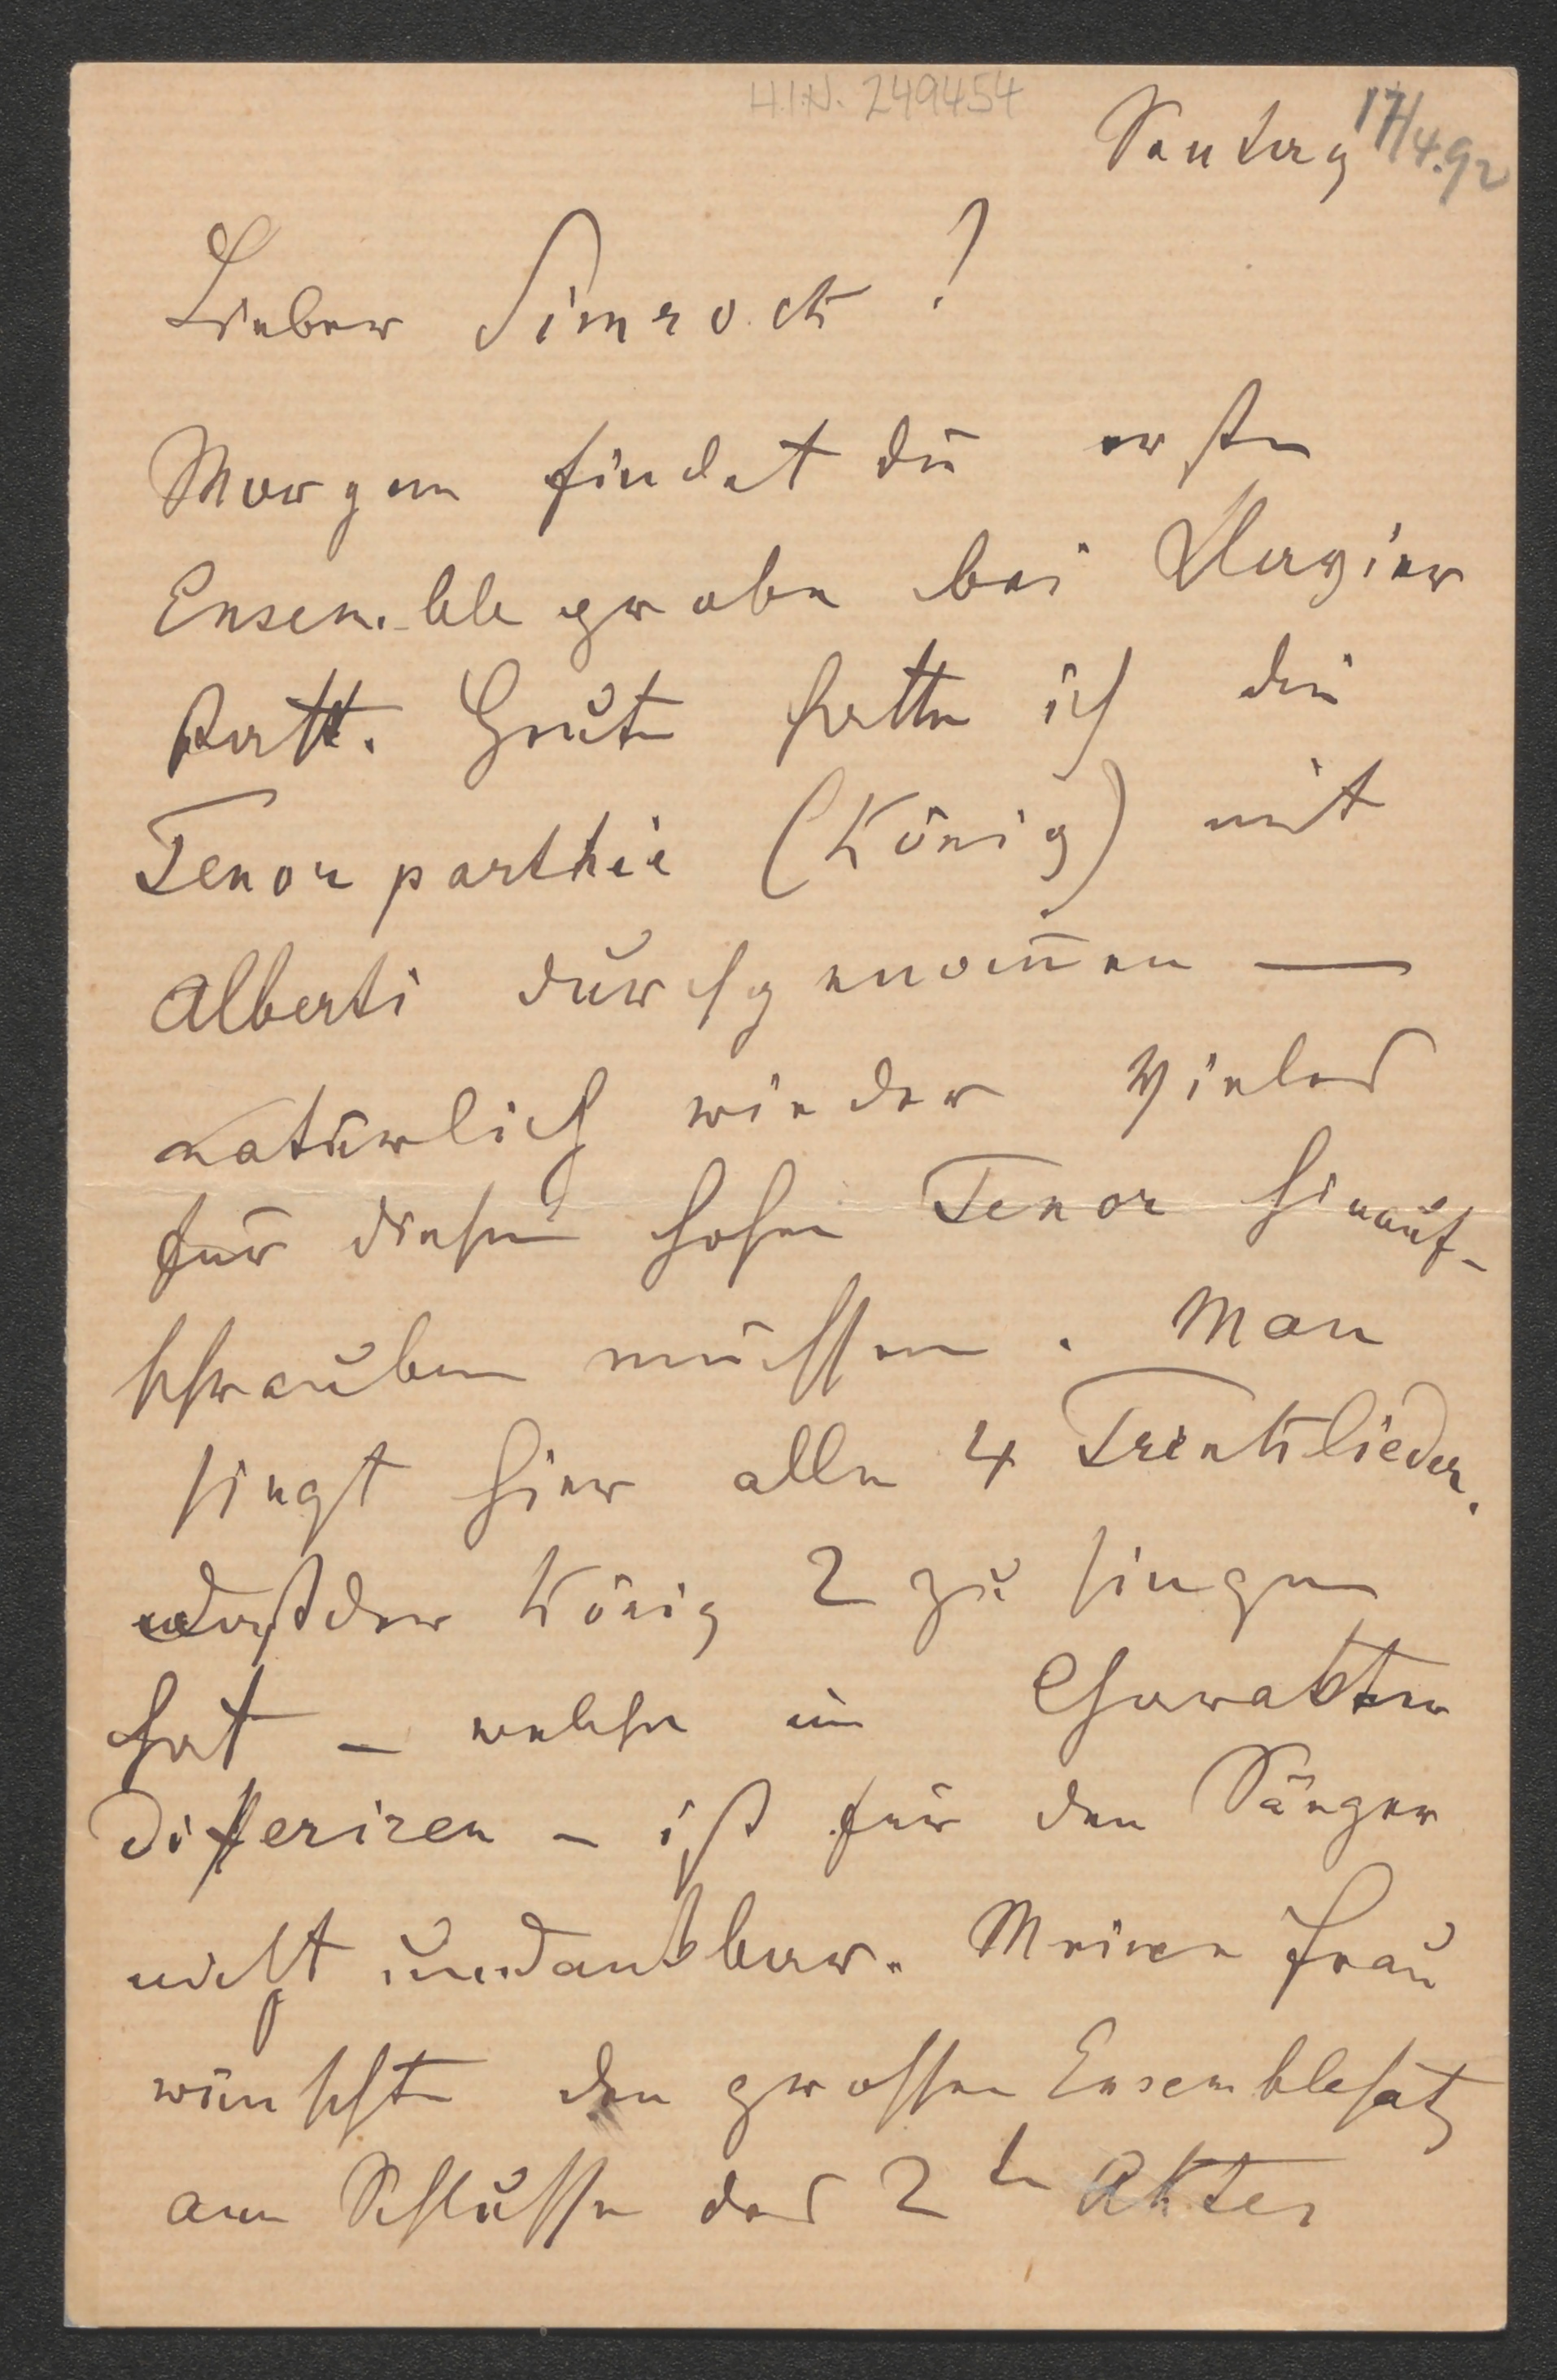 H.I.N. 249454
Sontag 17/4.92
Lieber Simrock!
Morgen findet die erste
Ensembleprobe bei Klavier
statt. Heute hatte ich die
Tenorparthie (König) mit
Alberti durchgenom̄en —
natürlich wieder Vieles
für diesen hohen Tenor hinauf-
schrauben müssen. Man
singt hier alle 4 Trinklieder.
Daß der König 2 zu singen
hat – welche im Charakter
differiren – ist für den Sänger
nicht undankbar. Meine Frau
wünschte den grossen Ensemblesatz
am Schlusse des 2ten Aktes